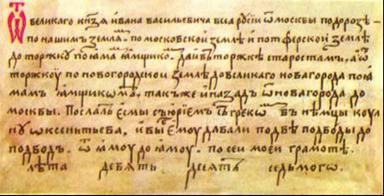 Ѿ великаго кнѧзѧ ивана василъевича всеа рꙋсіи ѿ москвы по дорозѣ
по нашим землѧм. по московской землѣ и по тферской землѣ
до торжкꙋ по ꙗмом ꙗмщиком. да и въ торжкѣ старостам. а ѿ
торжкꙋ по новогородской землѣ до великаго новагорода по ꙗ
мам ꙗмщиком. такъже и назад ѿ новагорода до
москвы. послал есмы съ юріем съ греком въ нѣмцы коꙋл
кꙋ ѡксентьева, и вы б емꙋ давали по двѣ подводы до
подвод. ѿ ꙗмꙋ до ꙗмꙋ. по сеи моеи грамотѣ.
лѣта девять десят седьмого